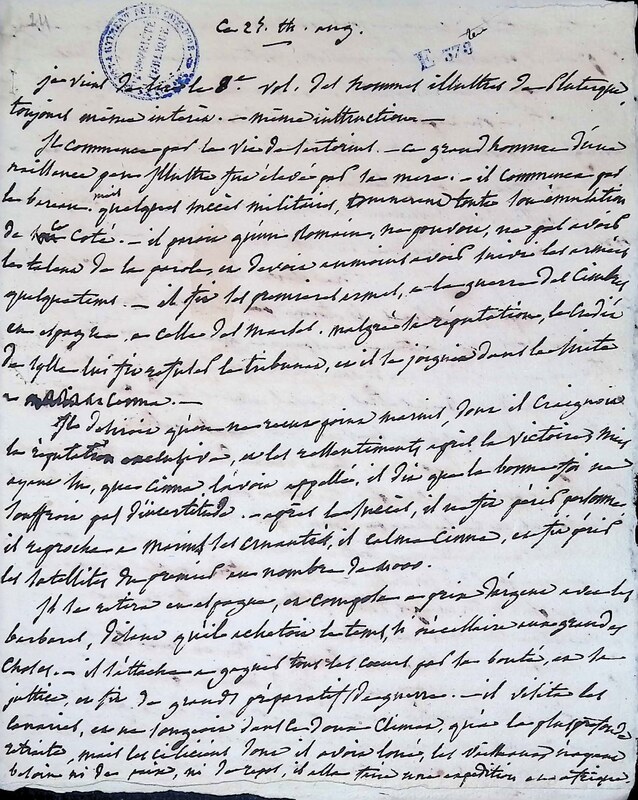 211
DÉPARTEMENT DE LA
PROPRIÉTÉ PUBLIQUE
Ce 25. th. aug.
E 378 ter
je viens de lire le 8e vol. des hommes illustres de Plutarque,
toujours même intérêt. — même instruction —
Il commence par la vie de Sertorius. — ce grand homme d'une
naissance peu illustre fut élevé par sa mere. — il commença par
le bareau. mais quelques succès militaires, tournerent toute son émulation
de ce coté. — il paroit qu'un Romain, ne pouvoit, ne pas avoir
les talens de la parole, et devoit au moins avoir suivi les armées
quelque tems. — il fit ses premieres armes, a la guerre des Cimbres
en espagne, a celle des Marses. malgré sa réputation, le crédit
de Sylla lui fit refuser le tribunat, et il se joignit dans la suite
a Cinna. —
Il desiroit qu'on ne reçut point marius, dont il craignoit
la réputation exclusive, et les ressentiments après la victoire, mais
ayant su, que Cinna l'avoit appellé, il dit que la bonne foi ne
souffroit pas d'incertitude. — après le succès, il ne fit périr personne
il reprocha a Marius ses cruautés, il calma Cinna, et fit périr
les satellites du premier au nombre de 4000.
Il se retira en espagne, et composa a prix d'argent avec les
barbares, disant qu'il achetoit le tems, si nécessaire aux grandes
choses. — il s'attacha a gagner tous les coeurs par sa bonté, et sa
justice, et fit de grands préparatifs de guerre. — il visita les
canaries, et ne songeoit dans ce doux climat, qu'a la plus profonde
retraite, mais les ciliciens dont il avoit loué, les vaisseaux n'ayant
besoin ni de paix, ni de repos, il alla faire une expedition en afrique